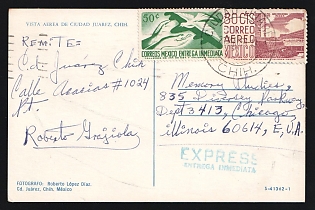 VISTA AEREA DE CIUDAD JUAREZ, CHIH.
REMITE:
Cd. Juarez Chih
Calle Acacias #1024
Nt.
Roberto
50¢
CORREOS MEXICO ENTREGA INMEDIATA
80 CTS
CORREO
AEREO
MEXICO
CHIH.
Memory
835 Diversey Parkway,
Dept 3413, Chicago,
Illinois 60614, E.U.A.
EXPRESS
ENTREGA INMEDIATA
FOTOGRAFO: Roberto López Díaz.
Cd. Juárez, Chih. México
S-41362-1